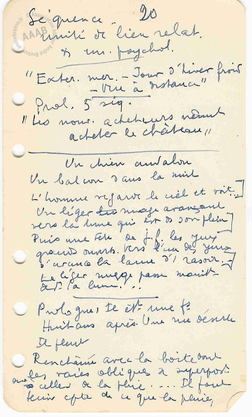 Séquence - 20
unité de lieu relat.
& un. psychol.
"Exter. mer. - Jour d'hiver froid
- Vue à distance"
Prol. 5 sig.
"Les nouv. acheteurs vienn
acheter le château"
Un chien andalou
Un balcon dans la nuit
L'homme regarde le ciel et voit
Un léger nuage avançant
vers la lune qui est ds son plein
Puis une tête de j.f. les yeux
grands ouverts. Vers l'un des yeux
s'avance la lame d'1 rasoir.
Le léger nuage passe maint.
Prologue Il ét. une fs
Huit ans après. Une rue déserte
Il pleut
avec la boîte dont
les raies obliques se superpos
à celles de la pluie.... Il faut
tenir cpte de ce que la pluie,